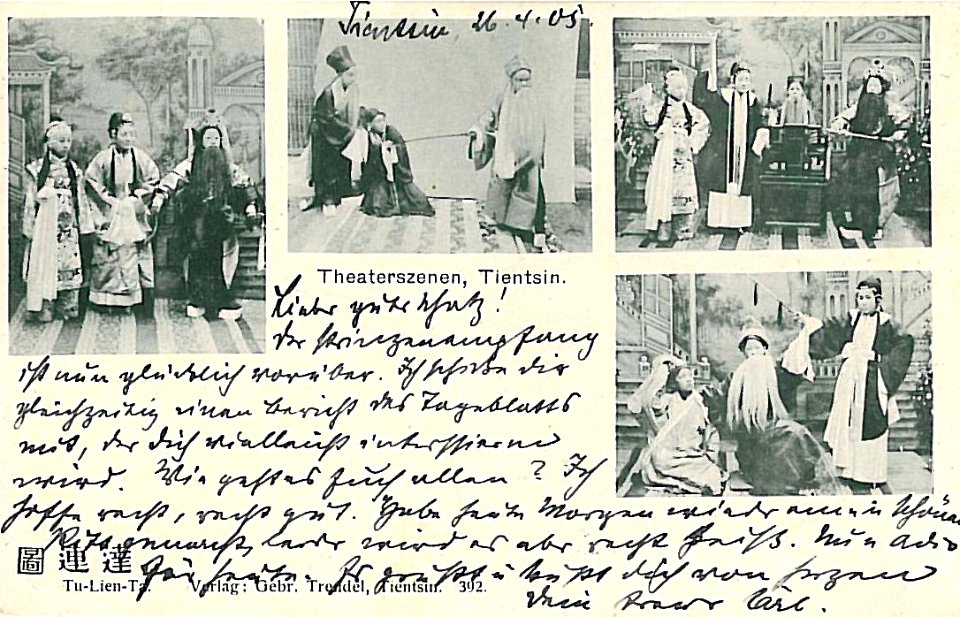 Tientsin, 26.4.05.
Theaterszenen, Tientsin.
Lieber guter Schatz!
Der Prinzenempfang
ist nun glücklich vorüber. Ich schicke dir
gleichzeitig einen Bericht des Tageblatts
mit, der dich vielleicht interssieren
wird. Wie geht es Euch allen? Ich
hoffe recht, recht gut. Habe heute Morgen wieder einen schönen
Ritt gemacht, leider wird es aber recht heiß. Nun adio
für heute. Es grüßt u küßt dich von Herzen
圖連達
Tu-Lien-Ta. Verlag: Gebr. Trendel, Tientsin. 392.
dein treuer